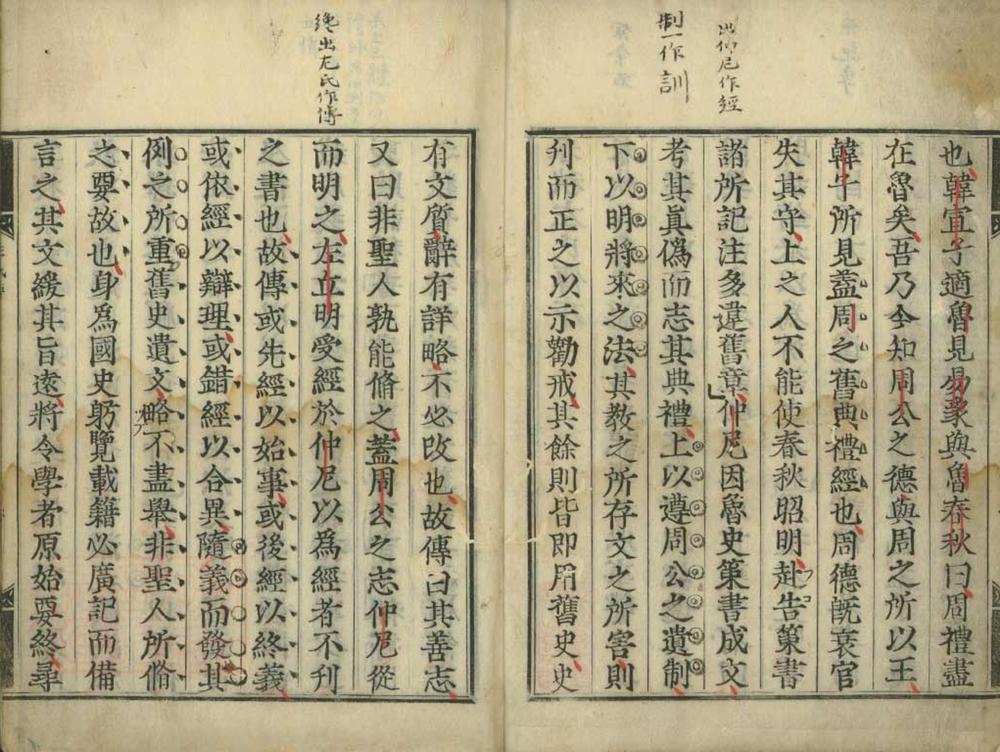 也韓宣子適魯見易象與魯春秋曰周禮盡
在魯矣吾乃今知周公之德與周之所以王
韓子所見蓋周之舊典禮經也周德旣衰官
失其守上之人不能使春秋昭明赴告策書
諸所記注多違舊章仲尼因魯史策書成文
考其眞偽而志其典禮上以遵周公之遺制
下以明將來之法其教之所存文之所害則
刋而正之以示勸戒其餘則皆即用舊史史
此仲尼作經
制一作訓
有文質辭有詳略不必改也故傳曰其善志
又曰非聖人孰能脩之蓋周公之志仲尼從
而明之左丘明受經於仲尼以為經者不刊
之書也故傳或先經以始事或後經以終義
或依經以辯理或錯經以合異隨義而發其
例之所重舊史遺文略不盡舉非聖人所脩
之要故也身為國史躬覽載籍必廣記而備
言之其文緩其旨遠將令學者原始要終尋
纔出左氏作傳